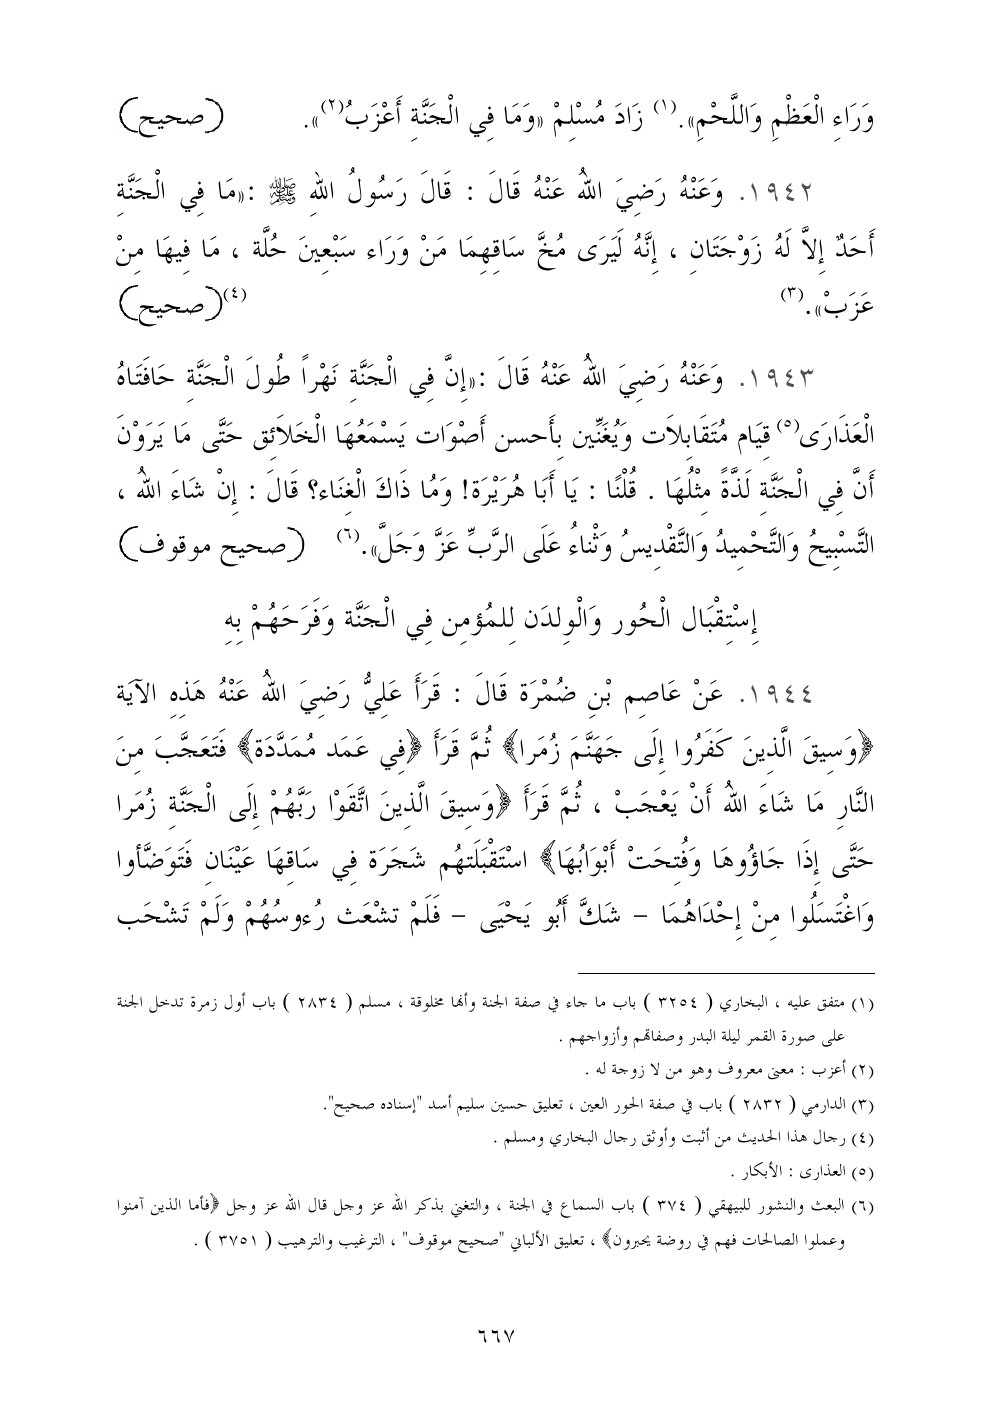 وَرَاءِ الْعَظْمِ وَاللَّحْمِ».(١) زَادَ مُسْلِمْ «وَمَا فِي الْجَنَّةِ أَعْزَبُ(٢)». (صحيح)
١٩٤٢. وَعَنْهُ رَضِيَ اللهُ عَنْهُ قَالَ : قَالَ رَسُولُ اللهِ ﷺ :«مَا فِي الْجَنَّةِ
أَحَدٌ إِلاَّ لَهُ زَوْجَتَانِ ، إِنَّهُ لَيَرَى مُخَّ سَاقِهِمَا مَنْ وَرَاء سَبْعِينَ حُلَّة ، مَا فِيهَا مِنْ
عَزَبْ».(٣) (٤)(صحيح)
١٩٤٣. وَعَنْهُ رَضِيَ اللهُ عَنْهُ قَالَ :«إِنَّ فِي الْجَنَّةِ نَهْراً طُولَ الْجَنَّةِ حَافَتَاهُ
الْعَذَارَى(٥) قِيَام مُتَقَابِلاَت وَيُغَنِّين بِأَحسن أَصْوَات يَسْمَعُهَا الْخَلاَئِق حَتَّى مَا يَرَوْنَ
أَنَّ فِي الْجَنَّةِ لَذَّةً مِثْلُهَا . قُلْنَا : يَا أَبَا هُرَيْرَة! وَمُا ذَاكَ الْغِنَاء؟ قَالَ : إِنْ شَاءَ اللهُ ،
التَّسْبِيحُ وَالتَّحْمِيدُ وَالتَّقْدِيسُ وَثْناءُ عَلَى الرَّبِّ عَزَّ وَجَلَّ».(٦) (صحيح موقوف)
إِسْتِقْبَال الْحُور وَالْوِلدَن لِلمُؤمِن فِي الْجَنَّة وَفَرَحَهُمْ بِهِ
١٩٤٤. عَنْ عَاصِم بْنِ ضُمْرَة قَالَ : قَرَأَ عَلِيُّ رَضِيَ اللهُ عَنْهُ هَذِهِ الآيَة
﴿وَسِيقَ الَّذِينَ كَفَرُوا إِلَى جَهَنَّمَ زُمَرا﴾ ثُمَّ قَرَأَ ﴿فِي عَمَد مُمَدَّدَة﴾ فَتَعَجَّبَ مِنَ
النَّارِ مَا شَاءَ اللهُ أَنْ يَعْجَبْ ، ثُمَّ قَرَأَ ﴿وَسِيقَ الَّذِينَ اتَّقَوْا رَبَّهُمْ إِلَى الْجَنَّةِ زُمَرا
حَتَّى إِذَا جَاؤُوهَا وَفُتِحَتْ أَبْوَابُهَا﴾ اسْتَقْبَلَتهُم شَجَرَة فِي سَاقِهَا عَيْنَانِ فَتَوَضَّأوا
وَاغْتَسَلُوا مِنْ إِحْدَاهُمَا – شَكَّ أَبُو يَحْيَى – فَلَمْ تشْعَث رُءوسُهُمْ وَلَمْ تَشْحَب
(١) متفق عليه ، البخاري ( ٣٢٥٤ ) باب ما جاء في صفة الجنة وأنها مخلوقة ، مسلم ( ٢٨٣٤ ) باب أول زمرة تدخل الجنة
على صورة القمر ليلة البدر وصفاتهم وأزواجهم .
(٢) أعزب : معنى معروف وهو من لا زوجة له .
(٣) الدارمي ( ٢٨٣٢ ) باب في صفة الحور العين ، تعليق حسين سليم أسد "إسناده صحيح".
(٤) رجال هذا الحديث من أثبت وأوثق رجال البخاري ومسلم .
(٥) العذارى : الأبكار .
(٦) البعث والنشور للبيهقي ( ٣٧٤ ) باب السماع في الجنة ، والتغني بذكر الله عز وجل قال الله عز وجل ﴿فأما الذين آمنوا
وعملوا الصالحات فهم في روضة يحبرون﴾ ، تعليق الألباني "صحيح موقوف" ، الترغيب والترهيب ( ٣٧٥١ ) .
٦٦٧